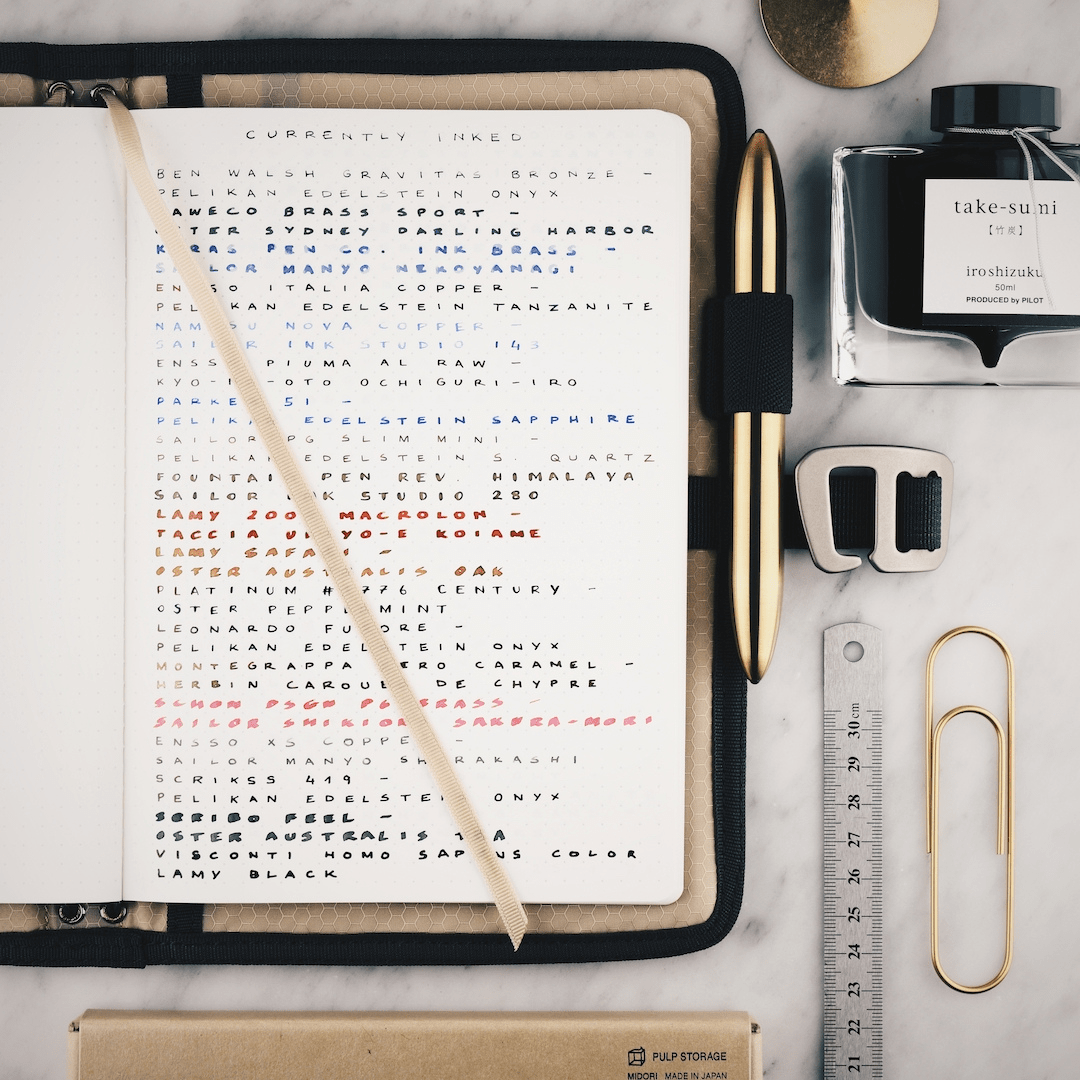 CURRENTLY INKED
BEN WALSH GRAVITAS BRONZE -
PELIKAN EDELSTEIN ONYX
KAWECO BRASS SPORT -
OSTER SYDNEY DARLING HARBOR
KARAS PEN CO. INK BRASS -
SAILOR MANYO NEKOYANAGI
ENSSO ITALIA COPPER -
PELIKAN EDELSTEIN TANZANITE
NAMISU NOVA COPPER -
SAILOR INK STUDIO 143
ENSSO PIUMA AL RAW -
KYO-NO-OTO OCHIGURI-IRO
PARKER 51 -
PELIKAN EDELSTEIN SAPPHIRE
SAILOR PG SLIM MINI -
PELIKAN EDELSTEIN S. QUARTZ
FOUNTAIN PEN REV. HIMALAYA
SAILOR INK STUDIO 280
LAMY 2000 MACROLON -
TACCIA UKIYO-E KOIAME
LAMY SAFARI -
OSTER AUSTRALIS OAK
PLATINUM #3776 CENTURY -
OSTER PEPPERMINT
LEONARDO FURORE -
PELIKAN EDELSTEIN ONYX
MONTEGRAPPA ZERO CARAMEL -
HERBIN CAROUBE DE CHYPRE
SCHON DSGN P6 BRASS -
SAILOR SHIKIORI SAKURA-MORI
ENSSO XS COPPER -
SAILOR MANYO SHIRAKASHI
SCRIKSS 419 -
PELIKAN EDELSTEIN ONYX
SCRIBO FEEL -
OSTER AUSTRALIS
VISCONTI HOMO SAPIENS COLOR
LAMY BLACK
take-sumi
【竹炭】
iroshizuku
50ml
PRODUCED by PILOT
30 cm
29
28
27
26
25
24
23
22
21
PULP STORAGE
MIDORI MADE IN JAPAN